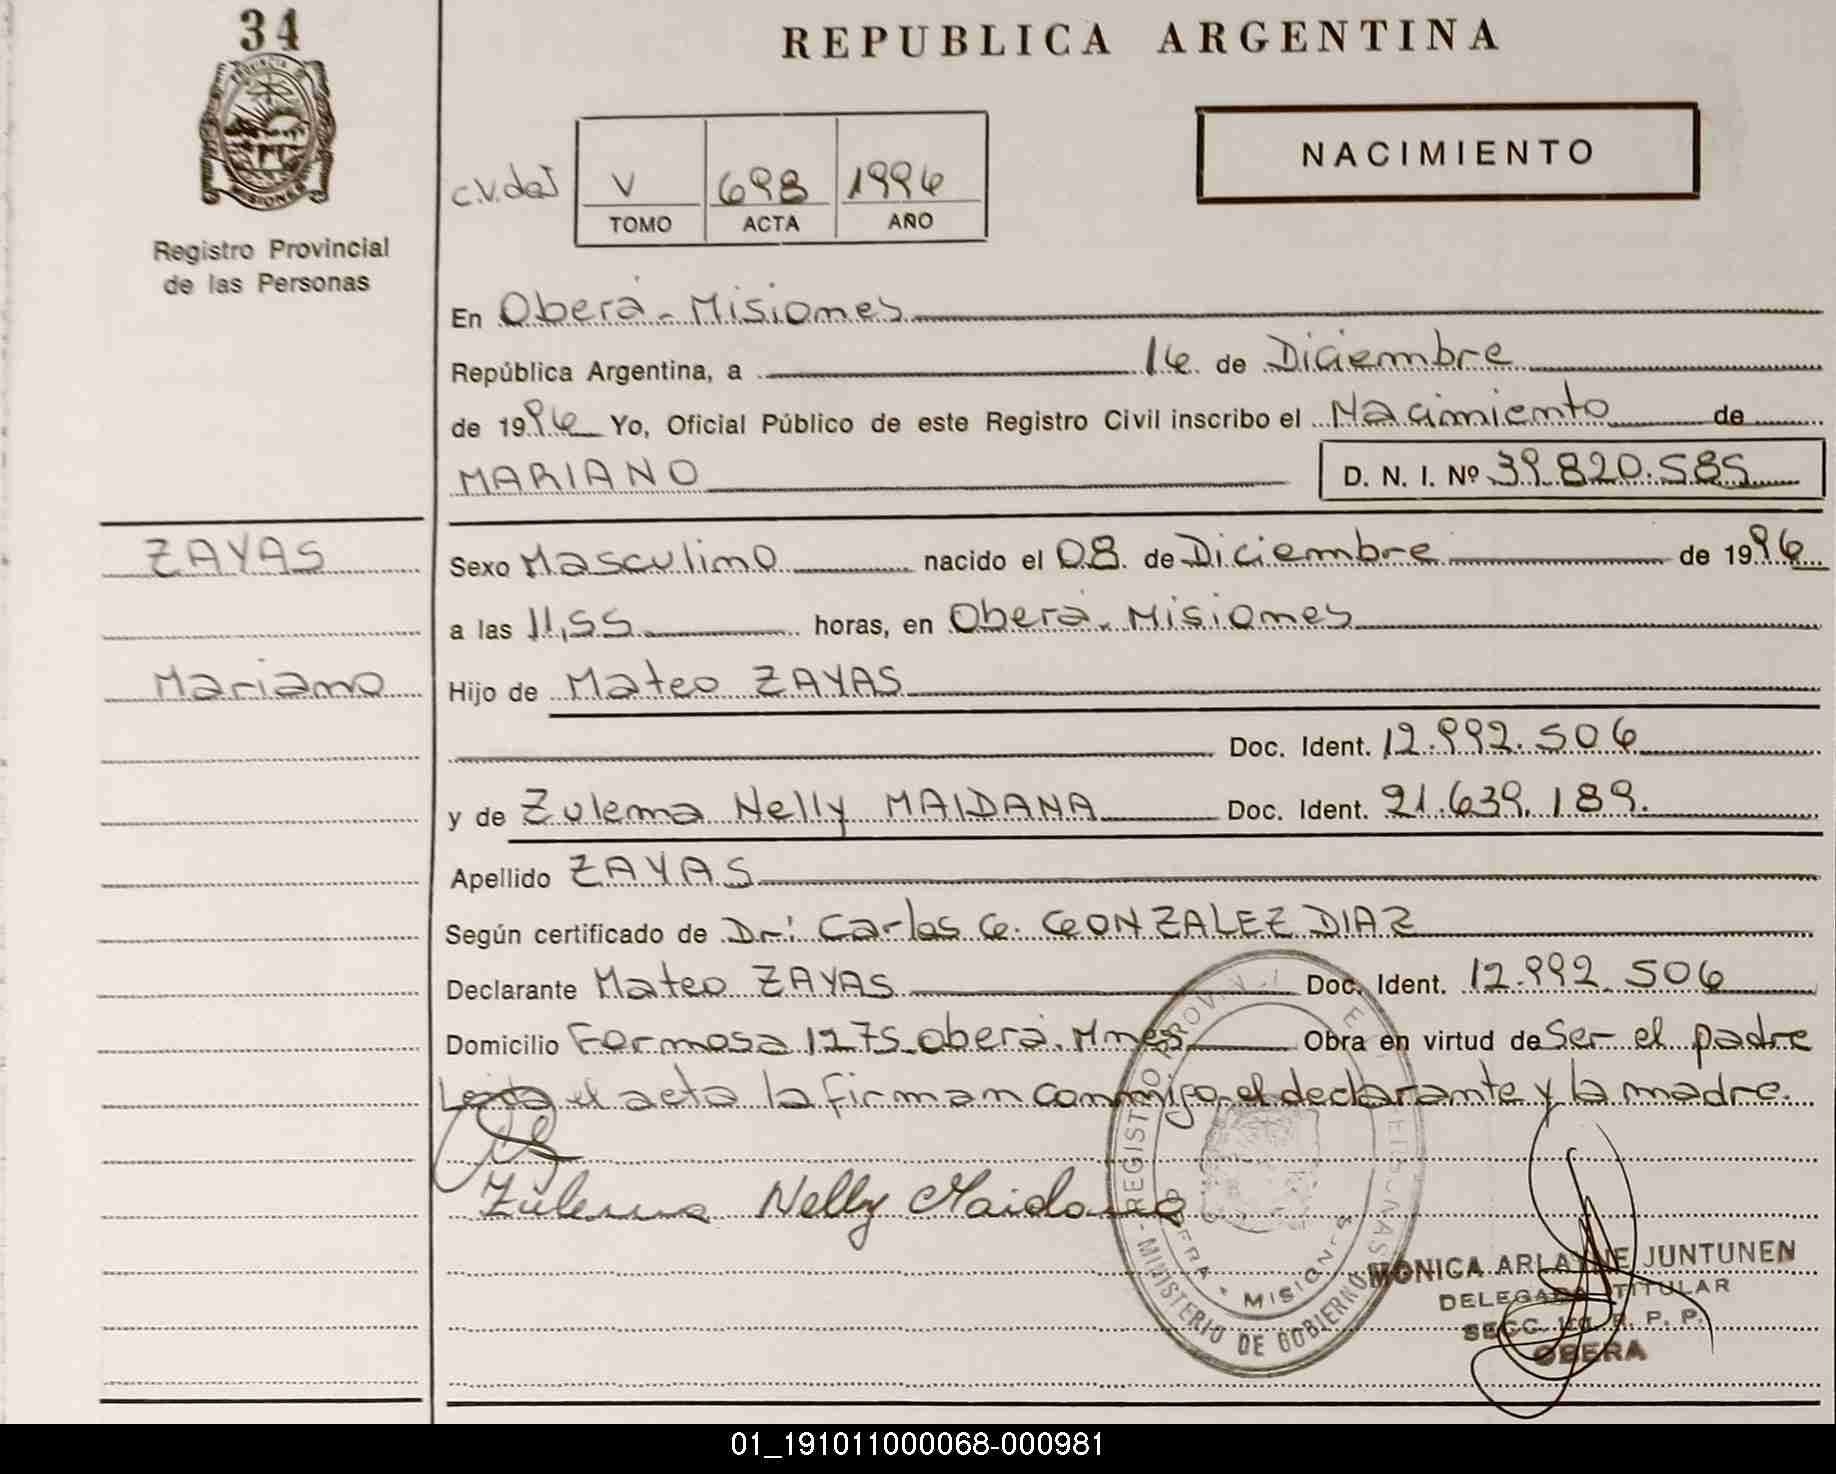 34
PROVINCIA DE
MISIONES
Registro Provincial
de las Personas
REPUBLICA ARGENTINA
NACIMIENTO
V 698 1996
TOMO ACTA AÑO
En Oberá - Misiones
República Argentina, a 16 de Diciembre
de 1996 Yo, Oficial Público de este Registro Civil inscribo el Nacimiento de
MARIANO D. N. I. Nº 39.820.585
ZAYAS
Mariano
Sexo Masculino nacido el 08 de Diciembre de 1996
a las 11,55 horas, en Oberá - Misiones
Hijo de Mateo ZAYAS
Doc. Ident. 12.992.506
y de Zulema Nelly MAIDANA Doc. Ident. 21.639.189.
Apellido ZAYAS
Según certificado de Dr: Carlos G. GONZALEZ DIAZ
Declarante Mateo ZAYAS Doc. Ident. 12.992.506
Domicilio Formosa 1275 Oberá. Mnes Obra en virtud de Ser el padre
Leída el acta la firman conmigo el declarante y la madre.
Zulema Nelly Maidana
MINISTERIO DE GOBIERNO - REGISTRO PROV.
MISIONES
MONICA ARLAYNE JUNTUNEN
DELEGADA TITULAR
SECC. 1ra. R. P. P.
OBERA
01_191011000068-000981